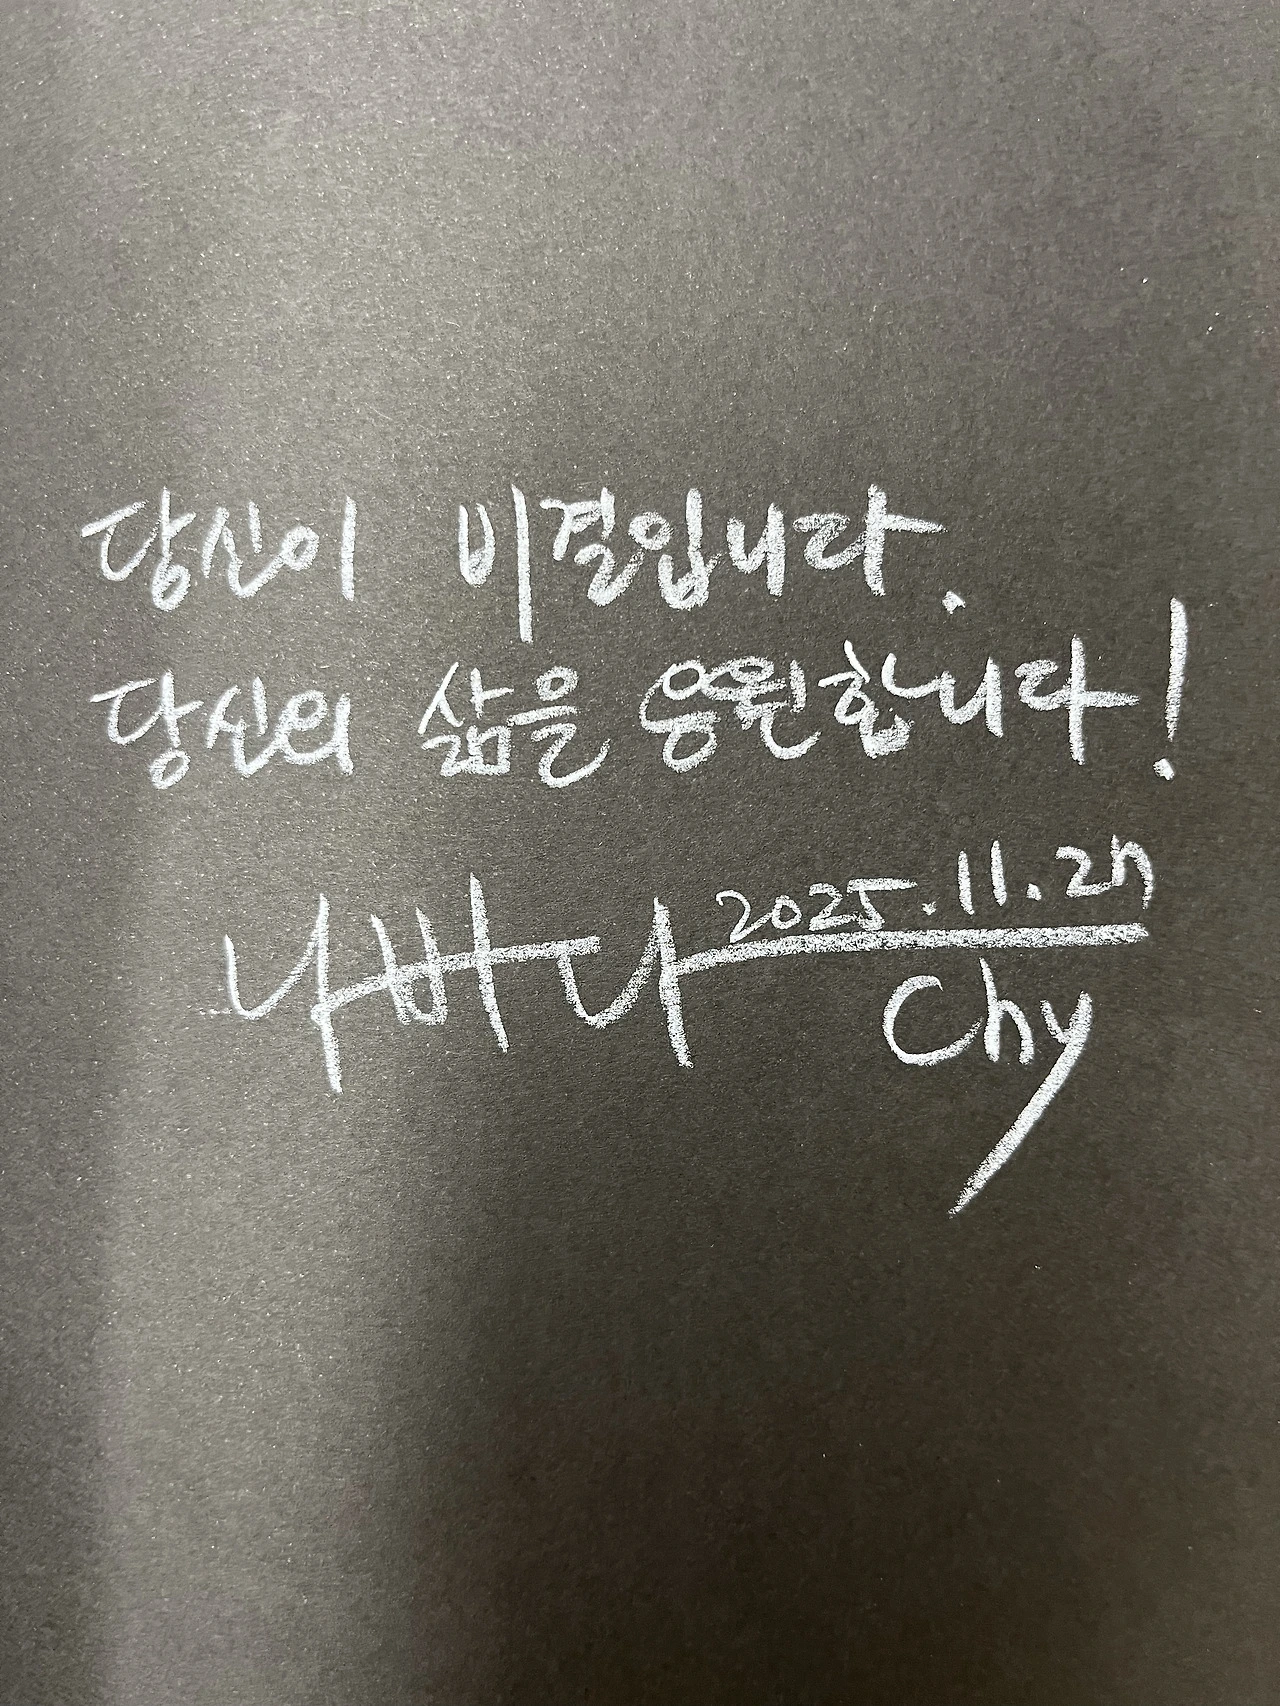 당신이 비결입니다.
당신의 삶을 응원합니다!
2025.11.27
나비나
Chy